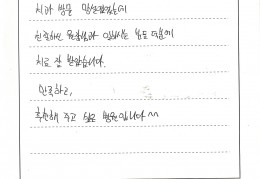 치과 방문 망설였었는데
친절하신 원장님과 의사선생님 덕분에
치료 잘 받았습니다.
만족하고,
추천해 주고 싶은 병원입니다 ^^